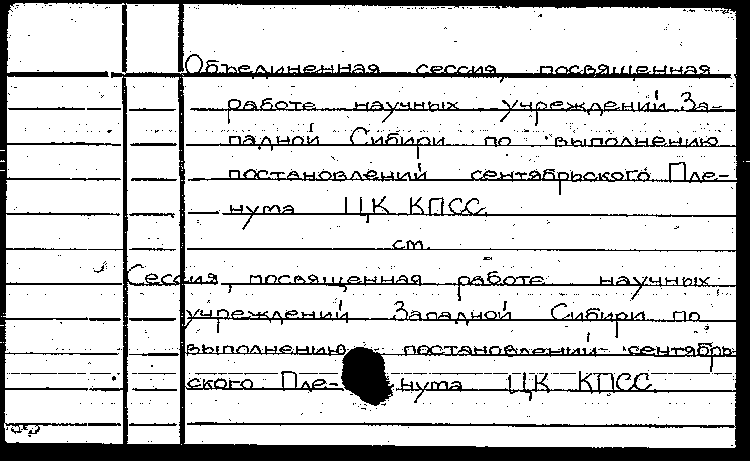 Объединенная сессия, посвященная
работе научных учреждений За-
падной Сибири по выполнению
постановлений сентябрьского Пле-
нума ЦК КПСС.
см.
Сессия, посвященная работе научных
учреждений Западной Сибири по
выполнению постановлений сентябрь
ского Пле- нума ЦК КПСС.